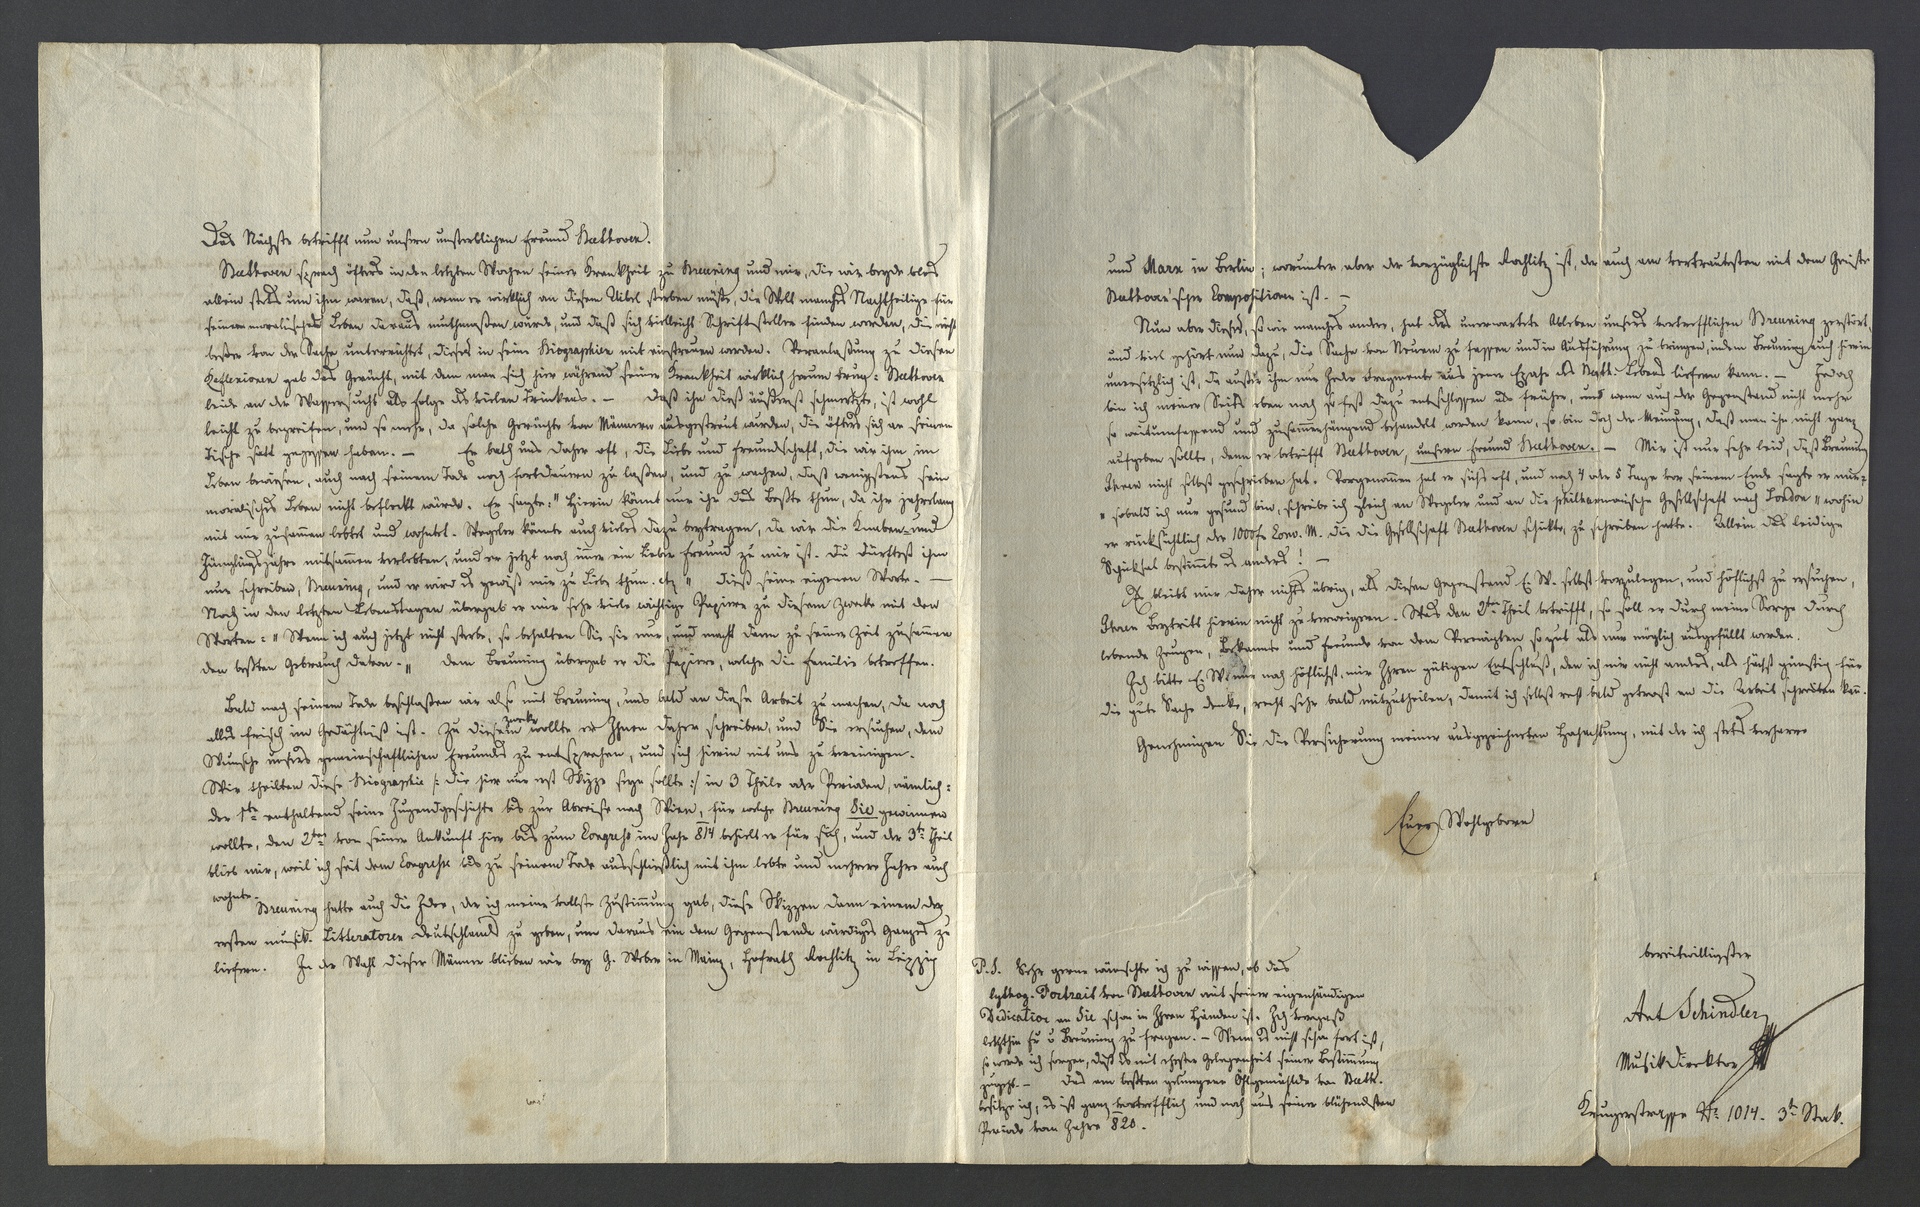 Das Nächste betrifft nun unsern unsterblichen Freund Beethoven.
Beethoven sprach öfters in den letzten Wochen seiner Krankheit zu Breuning und mir, die wir beyde blos
allein stets um ihn waren, daß, wenn er wirklich an diesem Uibel sterben müßte, die Welt manches Nachtheilige für
seinen moralischen Leben daraus muthmaßen würde, und daß sich vielleicht Schriftsteller finden werden, die nicht
besser von der Sache unterrichtet, dieses in seine Biographien mit einstreuen werden. Veranlaßung zu diesen
Reflexionen gab das Gerücht, mit dem man sich hier während seiner Krankheit wirklich herum trug: Beethoven
leide an der Wassersucht als Folge des vielen Trinkens. – Daß ihn dieß äußerst schmerzte, ist wohl
leicht zu begreifen, und so mehr, da solche Gerüchte von Männern ausgestreut wurden, die öfters sich an seinem
Tische satt gegessen haben. – Er bath uns daher oft, die Liebe und Freundschaft, die wir ihm im
Leben bewiesen, auch nach seinem Tode noch fortdauern zu laßen, und zu wachen, daß wenigstens sein
moralisches Leben nicht befleckt würde. Er sagte: " Hierin könnt nur ihr das Beßte thun, da ihr jahrelang
mit mir zusammen lebtet und wohntet. Wegeler könnte auch vieles dazu beytragen, da wir die Knaben- und
Jünglingsjahre mitsammen verlebten, und er jetzt noch immer ein lieber Freund zu mir ist. Du dürftest ihm
nur schreiben, Breuning, und er wird es gewiß mir zu Liebe thun. etz " dieß seine eigenen Worte. —
Noch in den letzten Lebenstagen übergab er mir sehr viele wichtige Papiere zu diesem Zweke mit den
Worten: " Wenn ich auch jetzt nicht sterbe, so behalten Sie sie nur, und macht dann zu seiner Zeit zusammen
den beßten Gebrauch davon. " dem Breuning übergab er die Papiere, welche die Familie betreffen.
Bald nach seinem Tode beschloßen wir also mit Breuning, uns bald an diese Arbeit zu machen, da noch
alles frisch im Gedächtniß ist. Zu diesem Zweke wollte er Ihnen daher schreiben, und Sie ersuchen, dem
Wunsche unsres gemeinschaftlichen Freundes zu entsprechen, und sich hierin mit uns zu vereinigen.
Wir theilten diese Biographie /: die hier nur erst Skizze seyn sollte :/ in 3 Theile oder Perioden, nämlich:
der 1te enthaltend seine Jugendgeschichte bis zur Abreise nach Wien, für welche Breuning Sie gewinnen
wollte, den 2ten von seiner Ankunft hier bis zum Congreß im Jahr 814 behielt er für sich, und der 3te Theil
blieb mir, weil ich seit dem Congreße bis zu seinem Tode ausschließlich mit ihm lebte und mehrere Jahre auch
wohnte.
Breuning hatte auch die Idee, der ich meine vollste Zustimmung gab, diese Skizzen dann einem der
ersten musik. Litteratoren Deutschlands zu geben, um daraus ein dem Gegenstande würdiges Ganzes zu
liefern. In der Wahl dieser Männer blieben wir bey G. Weber in Mainz, Hofrath Rochlitz in Leipzig
und Marx in Berlin; worunter aber der vorzüglichste Rochlitz ist, der auch am vertrautesten mit dem Geiste
Beethoven'scher Compositionen ist. –
Nun aber dieses, so wie manches andere, hat das unerwartete Ableben unsers vortrefflichen Breuning zerstört,
und viel gehört nun dazu, die Sache von Neuem zu fassen und in Ausführung zu bringen, indem Breuning auch hierin
unersetzlich ist, da außer ihm nur Jeder Fragmente aus jener Epoche des Beeth. Lebens liefern kann. – Jedoch
bin ich meiner Seits eben noch so fest dazu entschlossen als früher, und wenn auch der Gegenstand nicht mehr
so weitumfassend und zusammenhängend behandelt werden kann, so bin doch der Meinung, daß man ihn nicht ganz
aufgeben sollte, denn er betrifft Beethoven, unsern Freund Beethoven. – Mir ist nur sehr leid, daß Breuning
Ihnen nicht selbst geschrieben hat. Vorgenommen hat er sichs oft, und noch 4 oder 5 Tage vor seinem Ende sagte er mir:
" sobald ich nur gesund bin, schreibe ich gleich an Wegeler und an die philharmonische Gesellschaft nach London " wohin
er rücksichtlich der 1000 f. Conv. M. die die Gesellschaft Beethoven schickte, zu schreiben hatte. – Allein das leidige
Schicksal bestimmte es anders! –
Es bleibt mir daher nichts übrig, als diesen Gegenstand E. W. selbst vorzulegen, und höflichst zu ersuchen,
Ihren Beytritt hierin nicht zu verweigern. Was den 2ten Theil betrifft, so soll er durch meine Sorge durch
lebende Zeugen, Bekannte und Freunde von dem Verewigten so gut als nur möglich ausgefüllt werden.
Ich bitte E. W. nur noch höflichst, mir Ihren gütigen Entschluß, den ich mir nicht anders, als höchst günstig für
die gute Sache denke, recht sehr bald mitzutheilen, damit ich selbst recht bald getrost an die Arbeit schreiten kann.
Genehmigen Sie die Versicherung meiner ausgezeichneten Hochachtung, mit der ich stets verharre
Euer Wohlgeboren
bereitwilligster
Ant Schindler
Musikdirektor
Krugerstrasse No 1014. 3te Stok.
P.S. Sehr gerne wünschte ich zu wissen, ob das
lythog. Portrait von Beethoven mit seiner eigenhändigen
Dedication an Sie schon in Ihren Händen ist. Ich vergaß
letzthin Fr v Breuning zu fragen. – Wenn es nicht schon fort ist,
so werde ich sorgen, daß es mit ehester Gelegenheit seiner Bestimmung
zugeht. – Das am beßten gelungene Öhlgemählde von Beeth.
besitze ich, es ist ganz vortrefflich und noch aus seiner blühendsten
Periode vom Jahre 820.